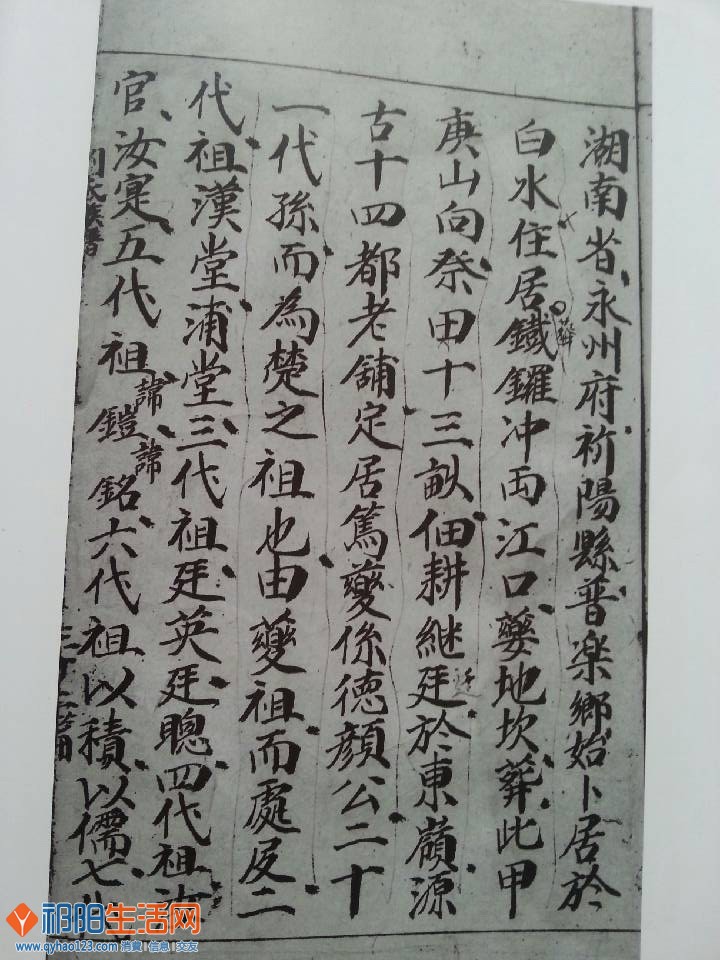 湖南省永州府祈陽縣普楽鄉始卜居於
白水住居鐵鑼冲両江口地坎葬此甲
庚山向祭田十三畝佃耕継廷於東嶺源
古十四都老舖定居篤夔係德顏公二十
一代孫而為楚之祖也由夔祖而處二
代祖漢堂浦堂三代祖廷英廷聰四代祖汝
官汝寔五代祖諱鎧諱銘六代祖以積以儒七
氏族譜
祁阳生活网
www.qyhao123.com 消費 | 信息 | 交友